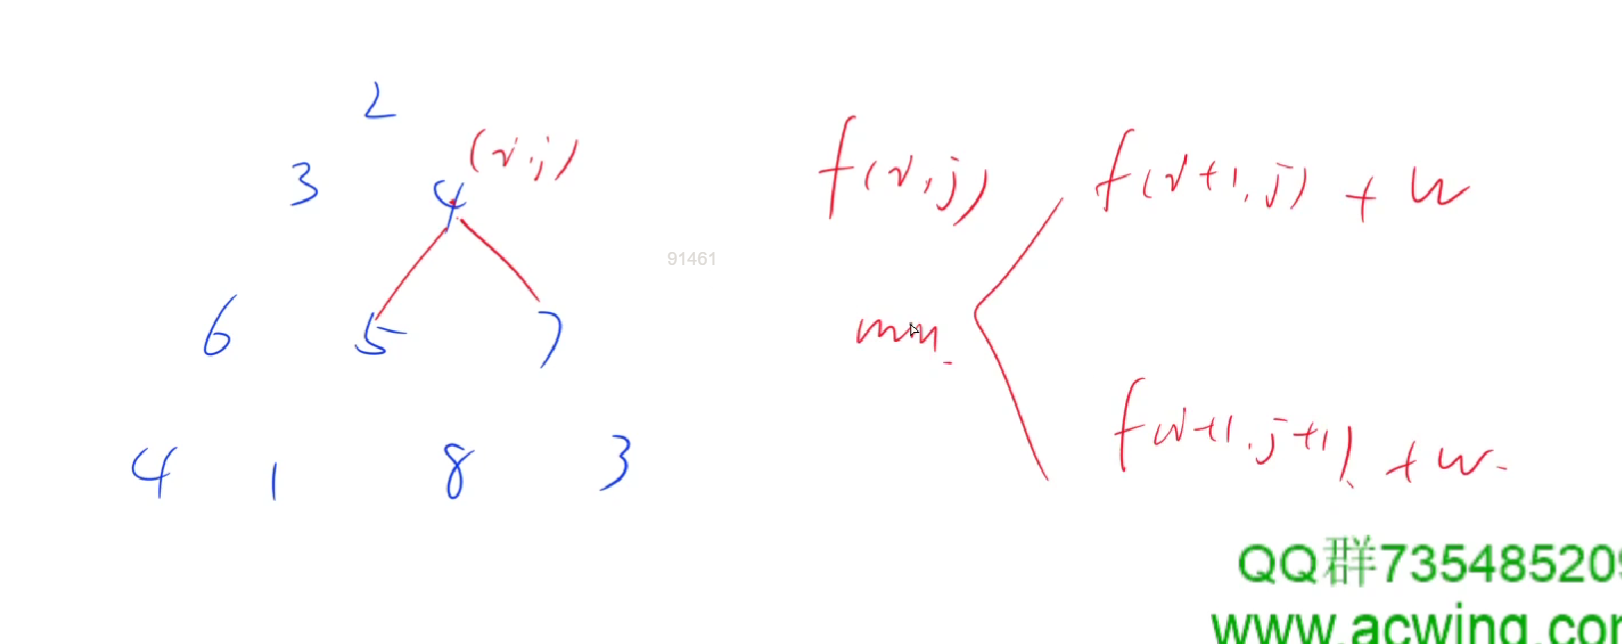 2
3 4 (i,j)
6 5 7
4 1 8 3
91461
f(i,j)
min
f(i+1,j) + w
f(i+1,j+1) + w
QQ群735485209
www.acwing.com